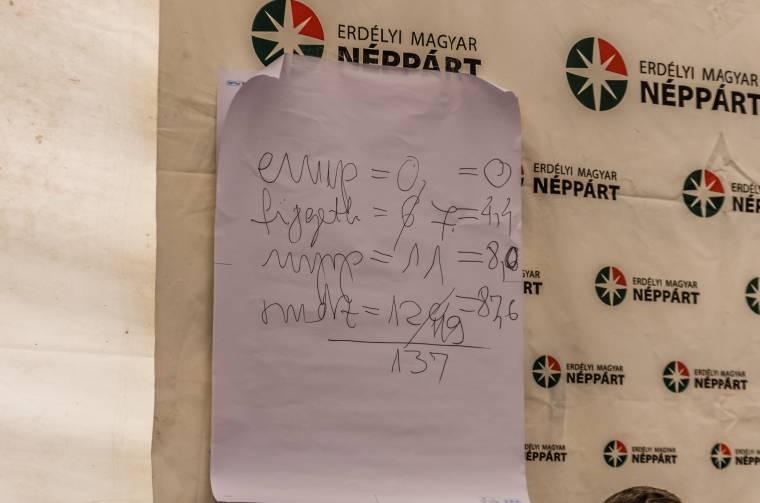 ERDÉLYI MAGYAR
NÉPPÁRT
ERDÉLYI MAGYAR
NÉPPÁRT
emnp = 0, = 0
függetl = 6 7 = 4,4
mpp = 11 = 8,0
rmdsz = 12 119 = 87,6
137
ERDÉLYI MAGYAR
NÉPPÁRT
ERDÉLYI
NÉP
GYAR
PÁRT
ERDÉLYI MAGYAR
NÉPPÁRT
ERDÉLYI MAGYAR
NÉPPÁRT
ERDÉLYI MAGYAR
NÉPPÁRT
ERDÉLYI MAGYAR
ÉPPÁRT
ERDÉLYI MAGYAR
NÉPPÁRT
ERDÉLYI MAGYAR
NÉPPÁRT